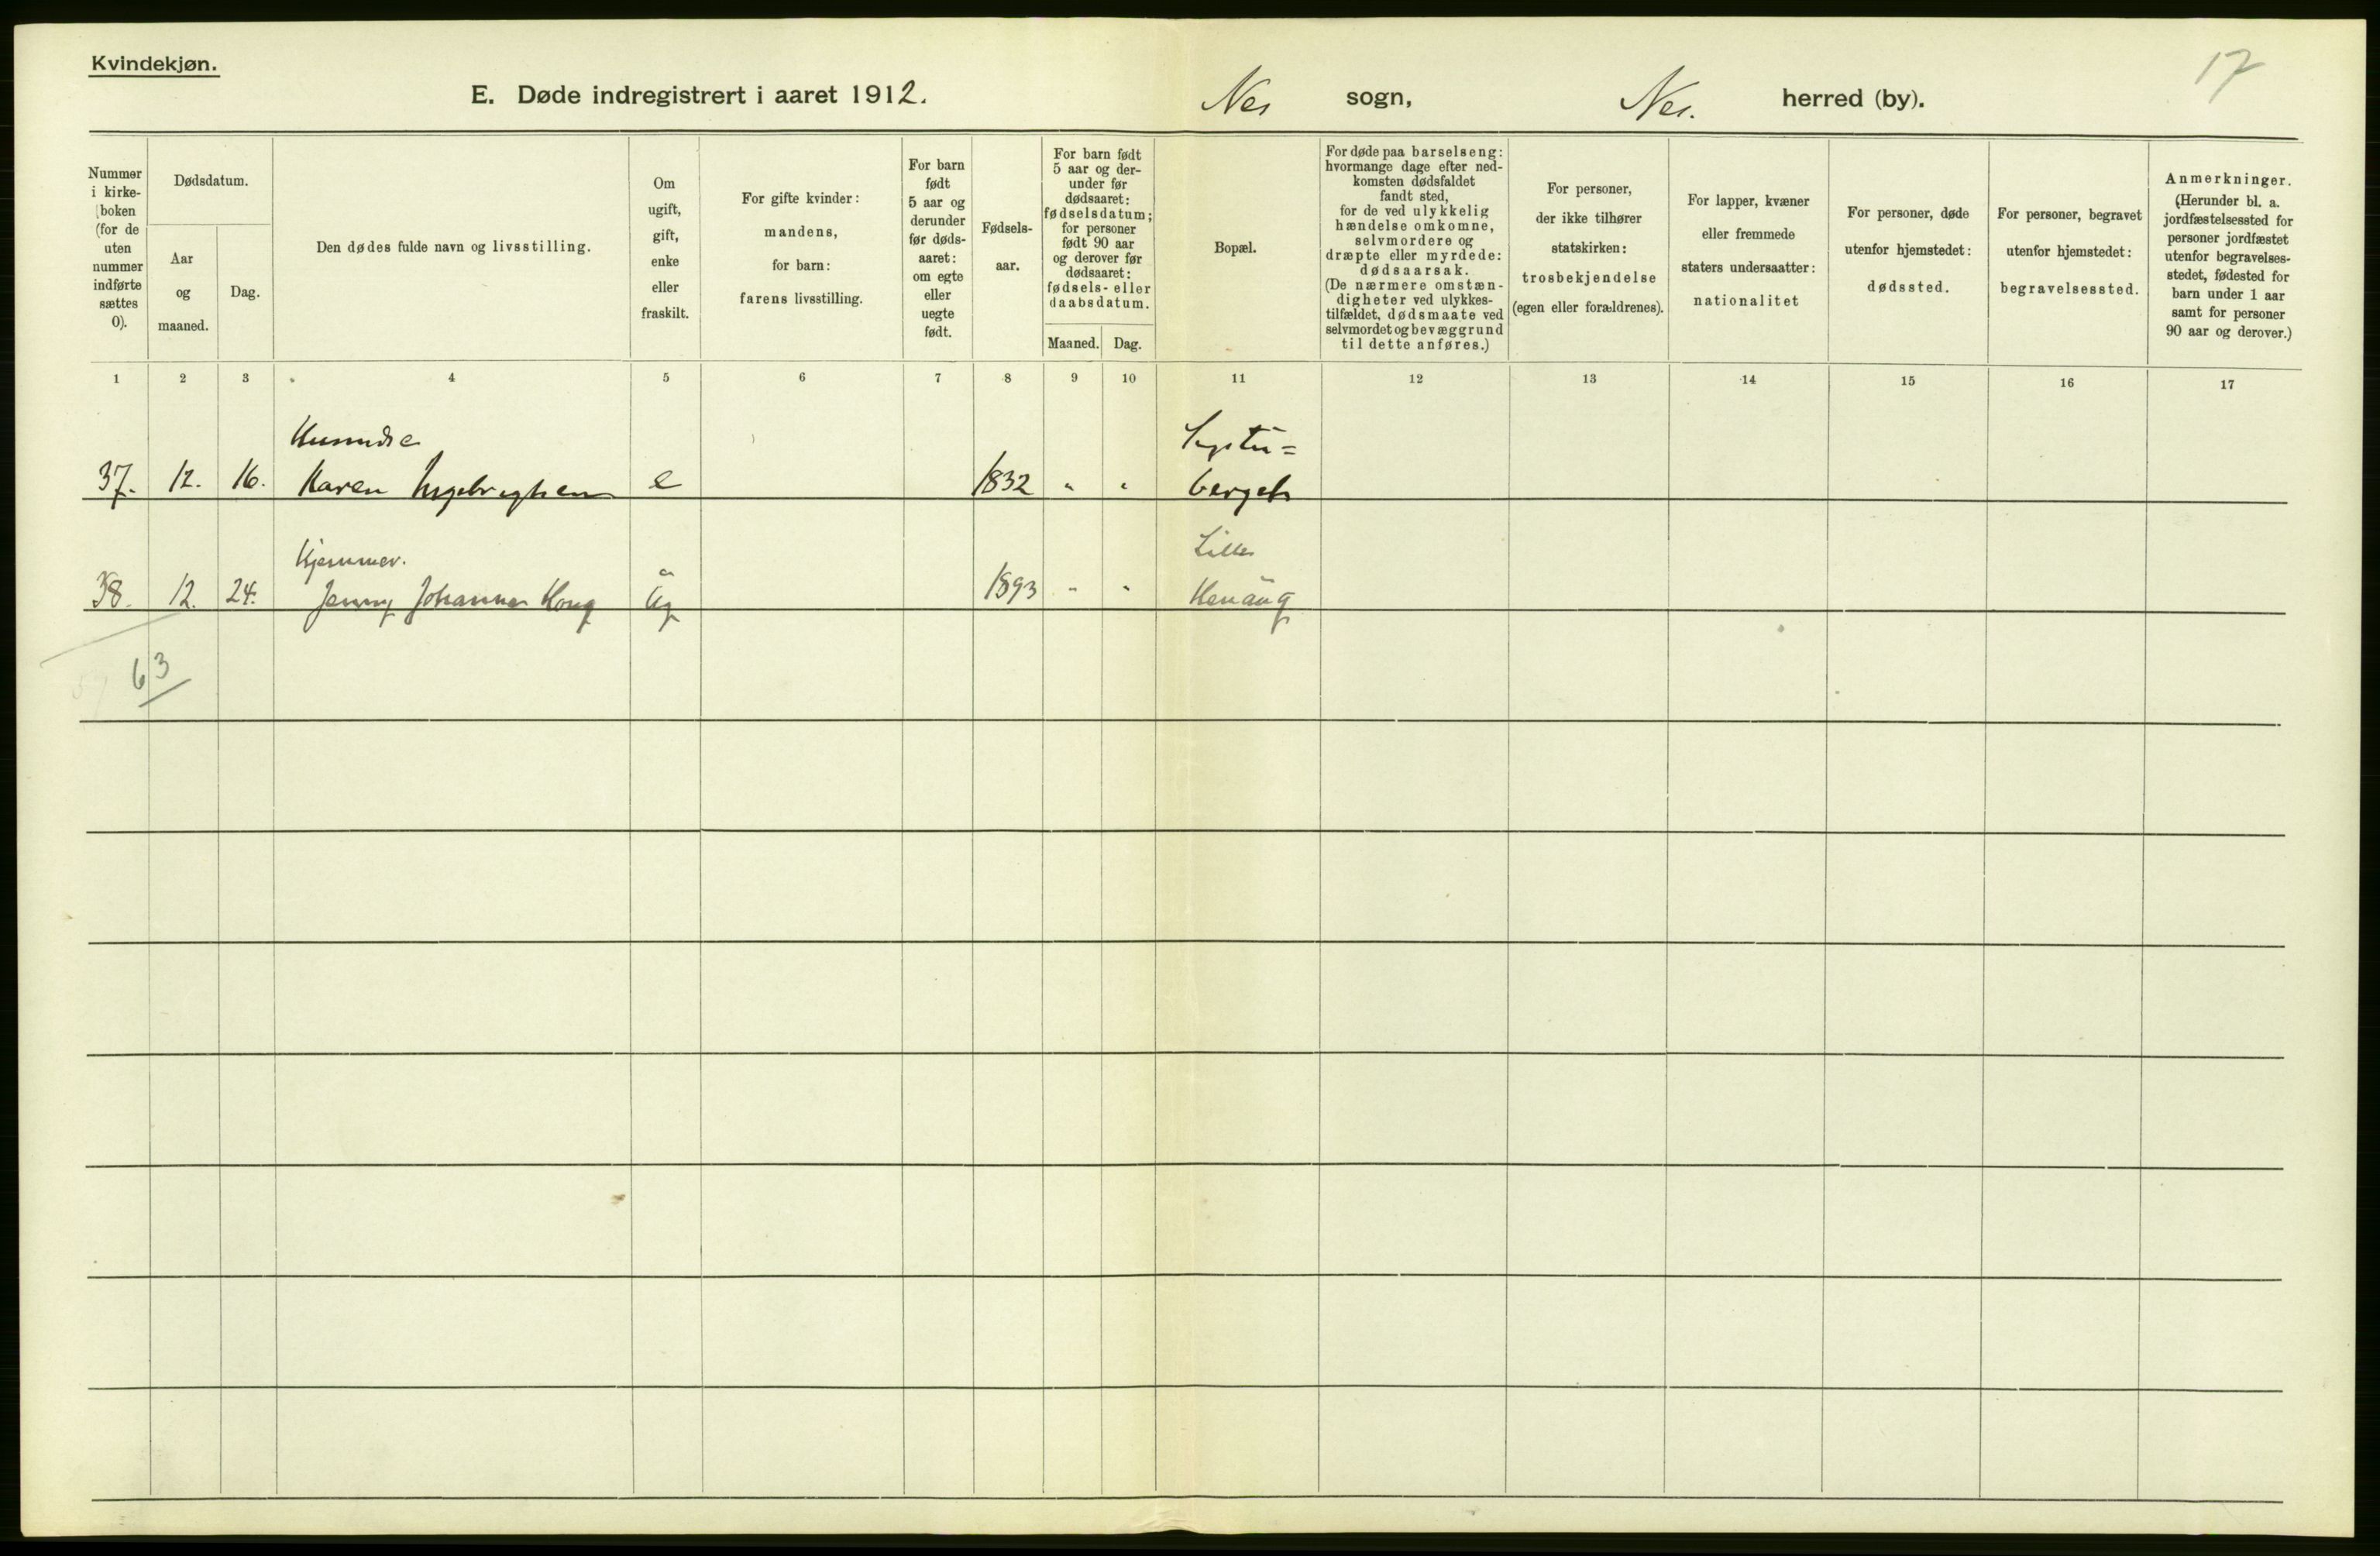 Kvindekjøn.
17
E. Døde indregistrert i aaret 1912.
Nes sogn, Nes. herred (by).
Nummer i kirkeboken (for de uten nummer indførte sættes 0).
Dødsdatum.
Aar og maaned.
Dag.
Den dødes fulde navn og livsstilling.
Om ugift, gift, enke eller fraskilt.
For gifte kvinder: mandens, for barn: farens livsstilling.
For barn født 5 aar og derunder før dødsaaret: om egte eller uegte født.
Fødselsaar.
For barn født 5 aar og derunder før dødsaaret: fødselsdatum; for personer født 90 aar og derover før dødsaaret: fødsels- eller daabsdatum.
Maaned. Dag.
Bopæl.
For døde paa barselseng: hvormange dage efter nedkomsten dødsfaldet fandt sted, for de ved ulykkelig hændelse omkomne, selvmordere og dræpte eller myrdede: dødsaarsak. (De nærmere omstændigheter ved ulykkestilfældet, dødsmaate ved selvmordet og bevæggrund til dette anføres.)
For personer, der ikke tilhører statskirken: trosbekjendelse (egen eller forældrenes).
For lapper, kvæner eller fremmede staters undersaatter: nationalitet
For personer, døde utenfor hjemstedet: dødssted.
For personer, begravet utenfor hjemstedet: begravelsessted.
Anmerkninger. (Herunder bl. a. jordfæstelsessted for personer jordfæstet utenfor begravelsesstedet, fødested for barn under 1 aar samt for personer 90 aar og derover.)
1 2 3 4 5 6 7 8 9 10 11 12 13 14 15 16 17
37. 12. 16. Karen Ingebrigtsen e 1832 " "
Hjemmev.
Lille
38. 12. 24. Jenny Johanne Ug 1893 " "
63